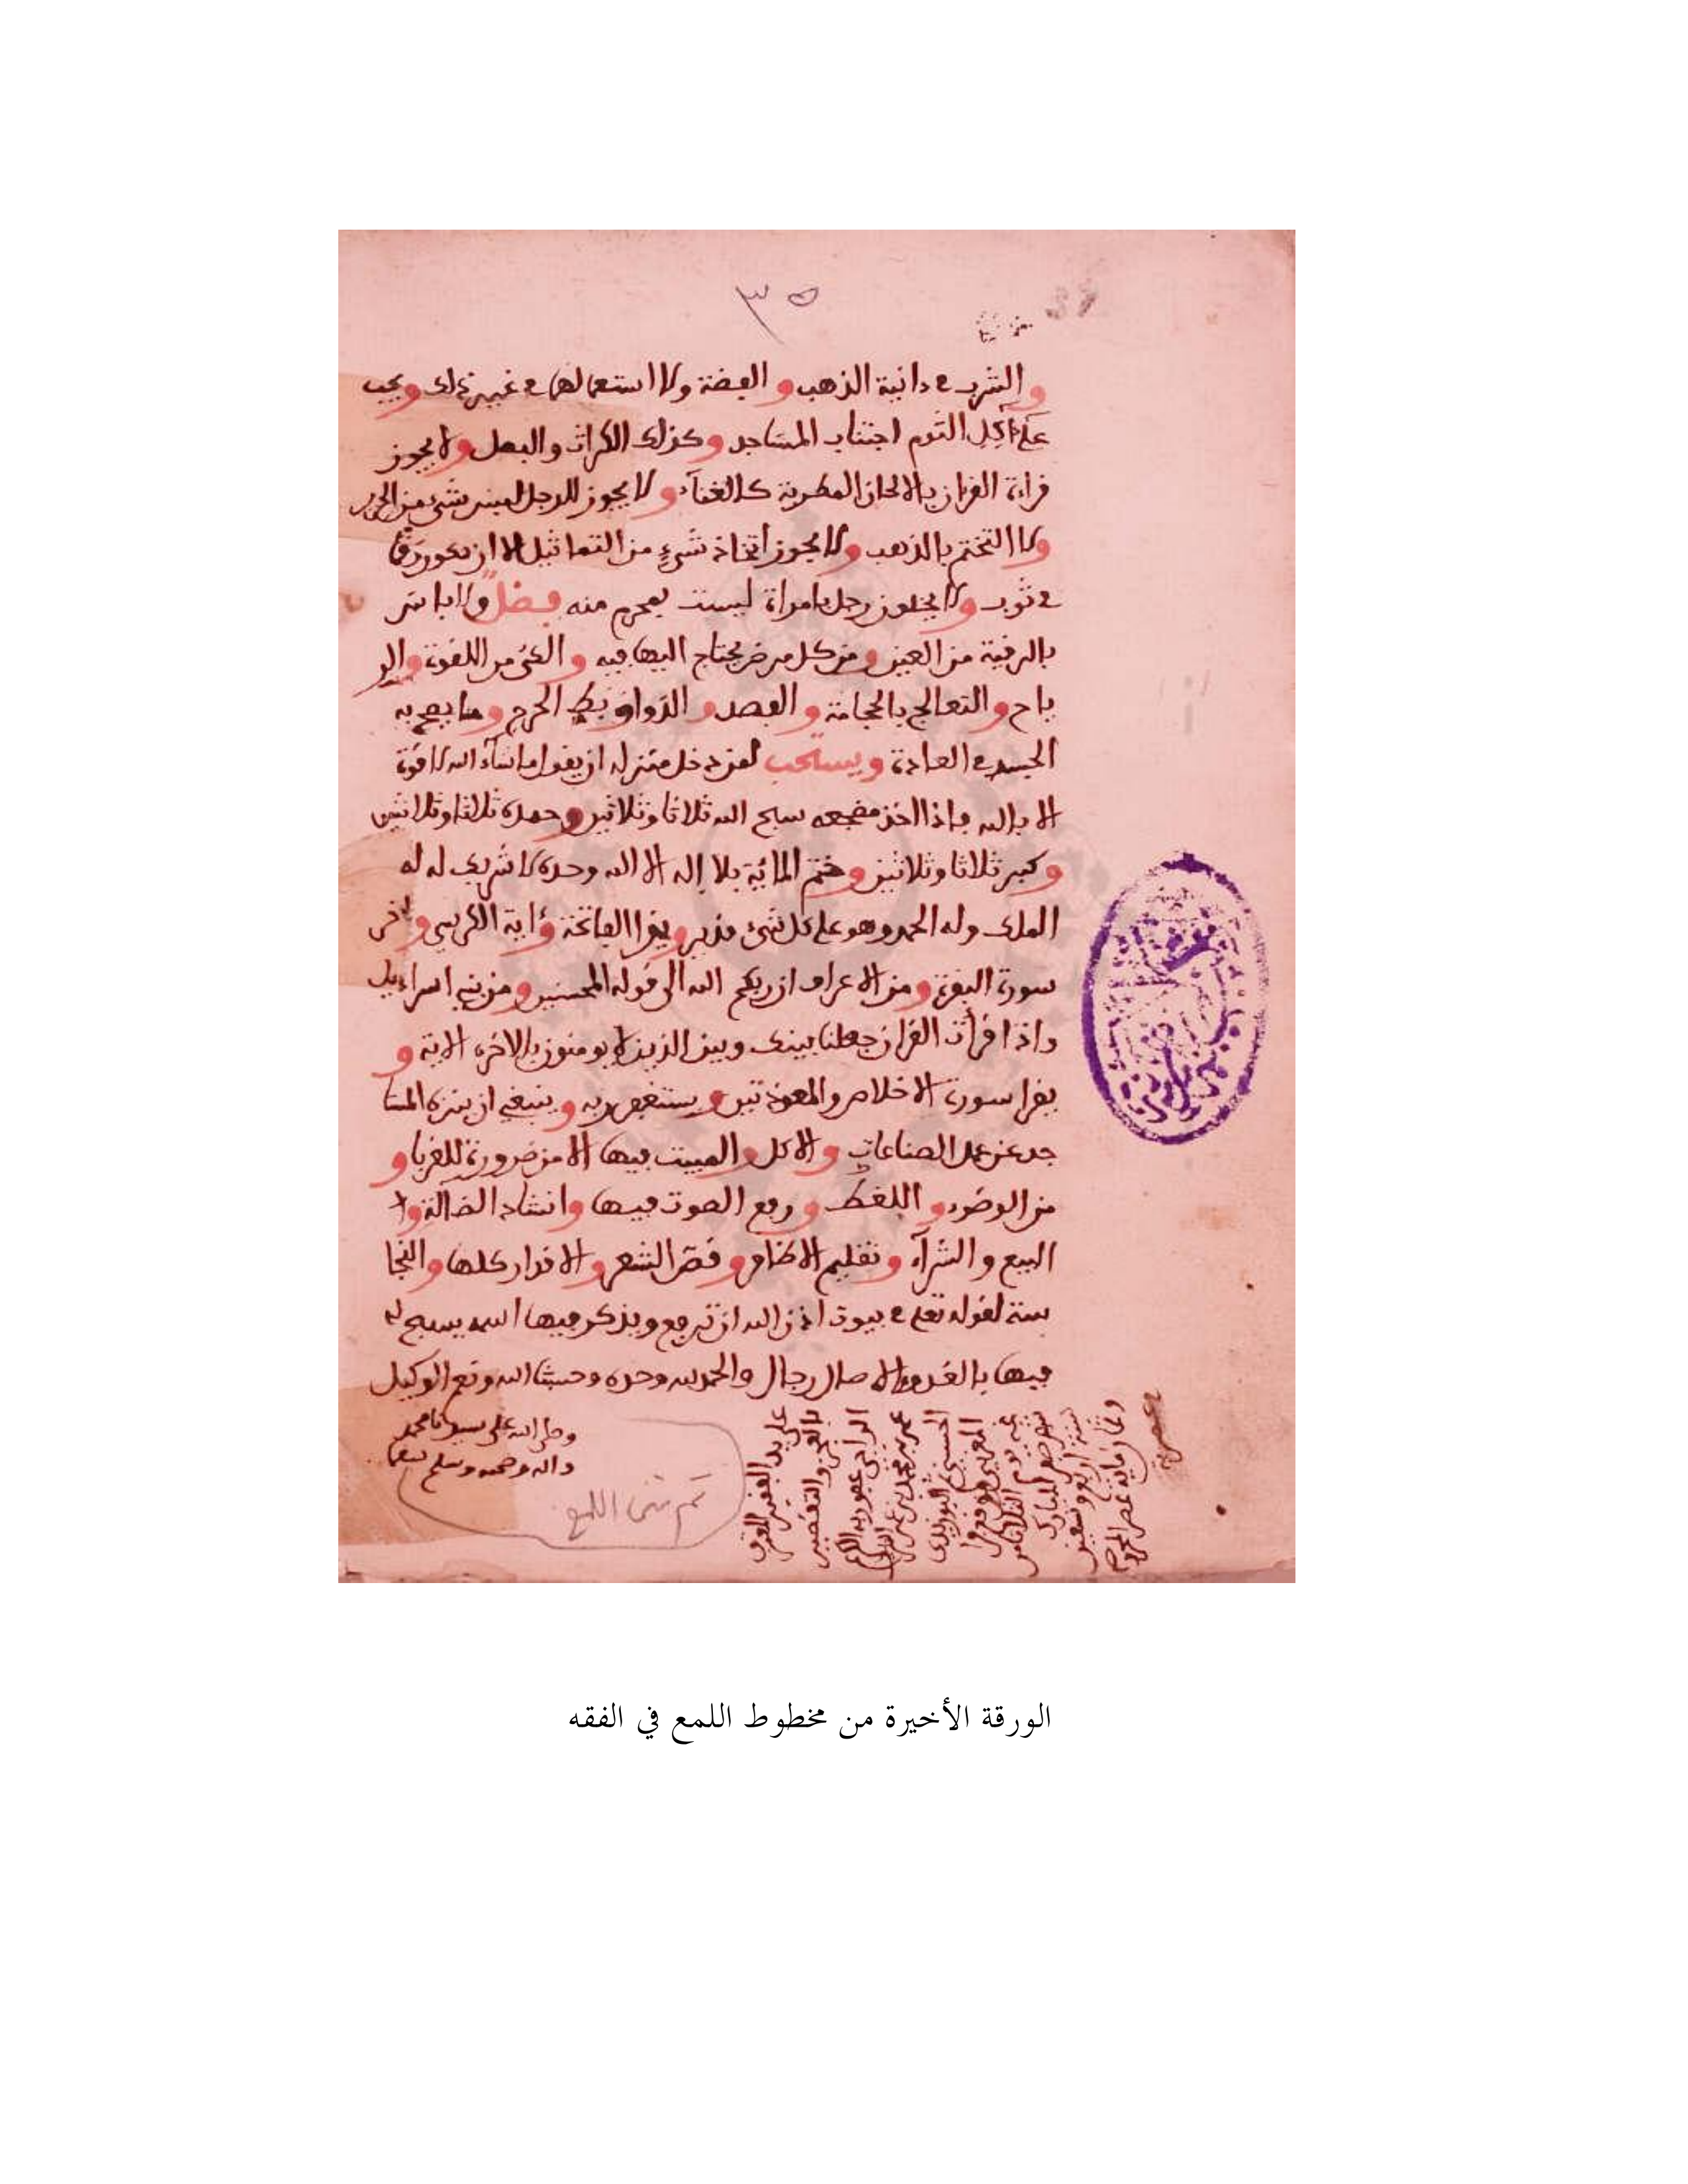 ٣٥
والشرب في ءانية الذهب والفضة ولا استعمالها في غير ذلك ويجب
على ءاكل الثوم اجتناب المساجد وكذلك الكراث والبصل ولا يجوز
قراءة القرءان بالالحان المطربة كالغناء ولا يجوز للرجل لبس شيء من الحرير
ولا التختم بالذهب ولا يجوز اتخاذ شيء من التماثيل الا ان يكون رقما
في ثوب ولا يخلون رجل بامراة ليست بمحرم منه فصل ولا باس
بالرقية من العين ومن كل مرض يحتاج اليها فيه والكي من اللقوة والر
ياح والتعالج بالحجامة والفصد والدواء وبط الجرح وما يصح به
الجسد في العادة ويستحب لمن دخل منزله ان يقول ما شاء الله لا قوة
الا بالله فاذا اخذ مضجعه سبح الله ثلاثا وثلاثين وحمده ثلاثا وثلاثين
وكبر ثلاثا وثلاثين وختم المائة بلا إله الا الله وحده لا شريك له له
الملك وله الحمد وهو على كل شيء قدير ويقرا الفاتحة وءاية الكرسي وءاخر
سورة البقرة ومن الاعراف ان ربكم الله الى قوله المحسنين ومن بني اسراءيل
واذا قرأت القرءان جعلنا بينك وبين الذين لا يومنون بالاخرة الاية و
يقرا سورة الاخلاص والمعوذتين ويستغفر ربه وينبغي ان ينزه المسا
جد عن عمل الصناعات والاكل والمبيت فيها الا من ضرورة للغربا و
من الوضوء واللغط ورفع الصوت فيها وانشاد الضالة و
البيع والشراء وتقليم الاظافر وقص الشعر والاقذار كلها والنجا
سة لقوله تعلى في بيوت اذن الله ان ترفع ويذكر فيها اسمه يسبح له
فيها بالغدو والاصال رجال والحمد لله وحده وحسبنا الله ونعم الوكيل
وصلى الله على سيدنا محمد
وءاله وصحبه وسلم تسليما
تم متن اللمع
على يد الفقير
بالعجز والتقصير
الراجي عفو ربه
عمر بن محمد بن
الحسني البوزيدي
المغربي
يوم الثلاثا
شهر صفر المبارك
سنة اربع وسبعين
الورقة الأخيرة من مخطوط اللمع في الفقه